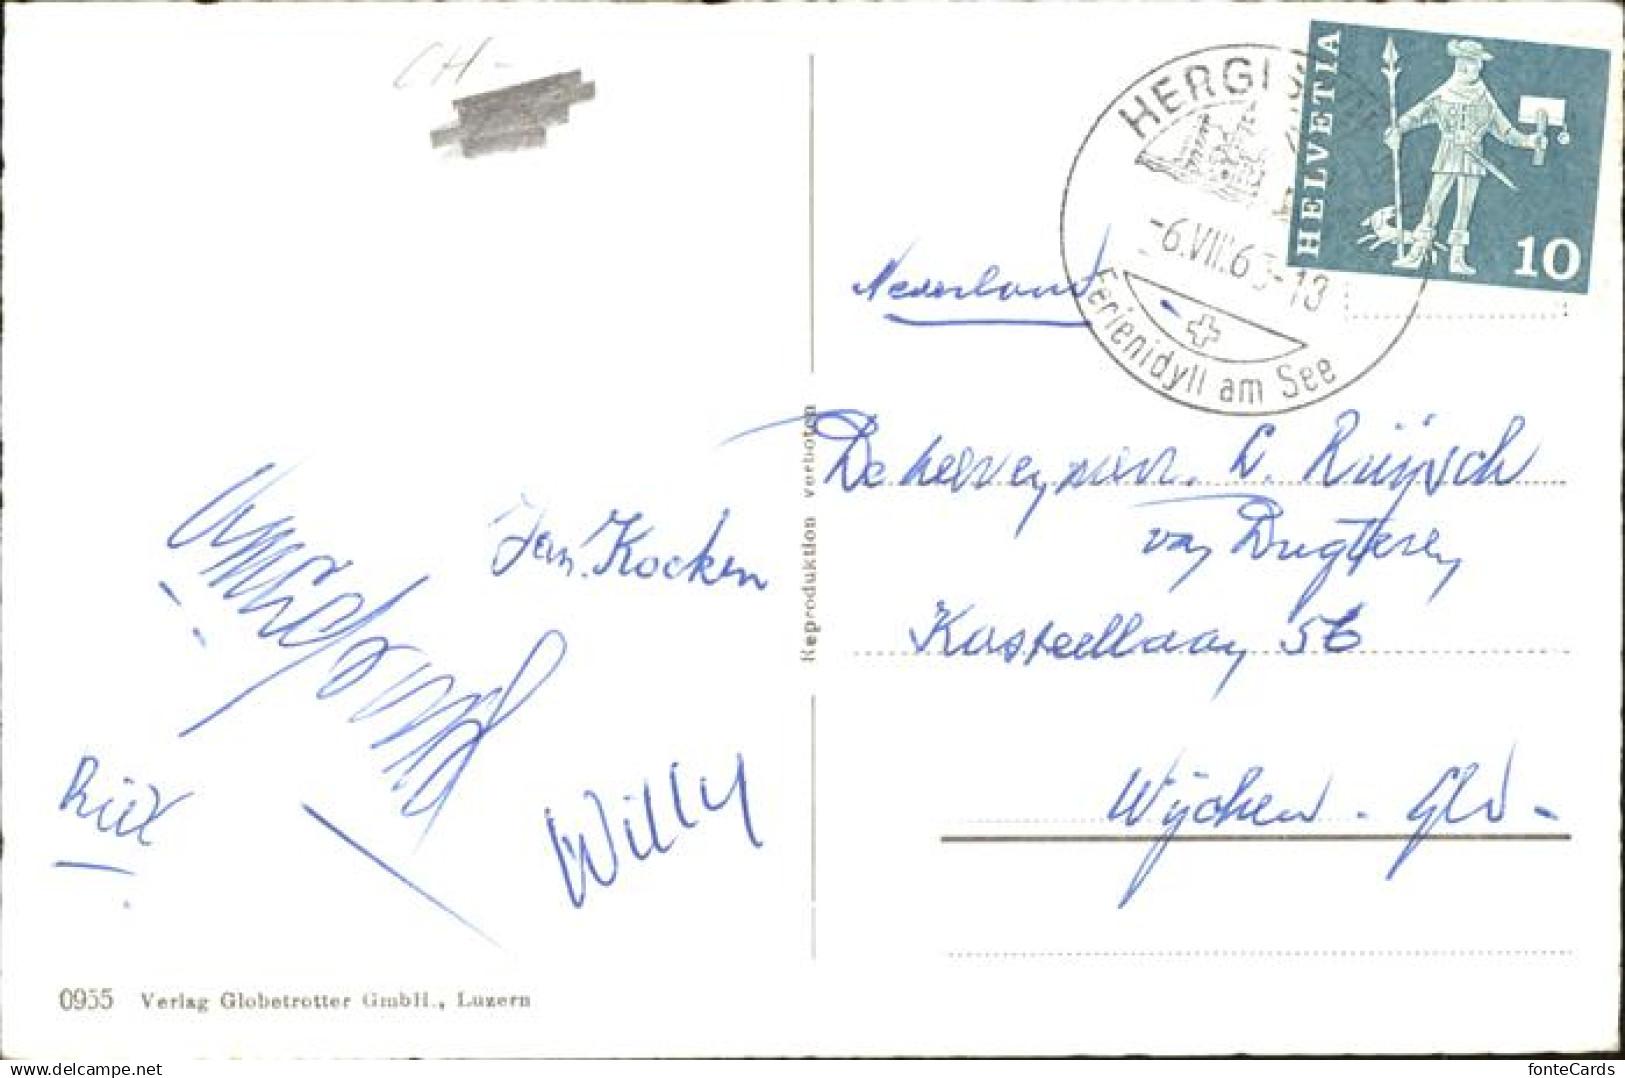 CH-
HERGISWIL
-6.VIII.6 -13
Ferienidyll am See
HELVETIA
10
Nederland
De heer en mevr. L. Rüijsch
van Dugteren
Kasteellaan 56
Wijchen - Gld -
Jan Kocken
Riet
Willy
Reproduktion verboten
0955 Verlag Globetrotter GmbH., Luzern
fonteCards